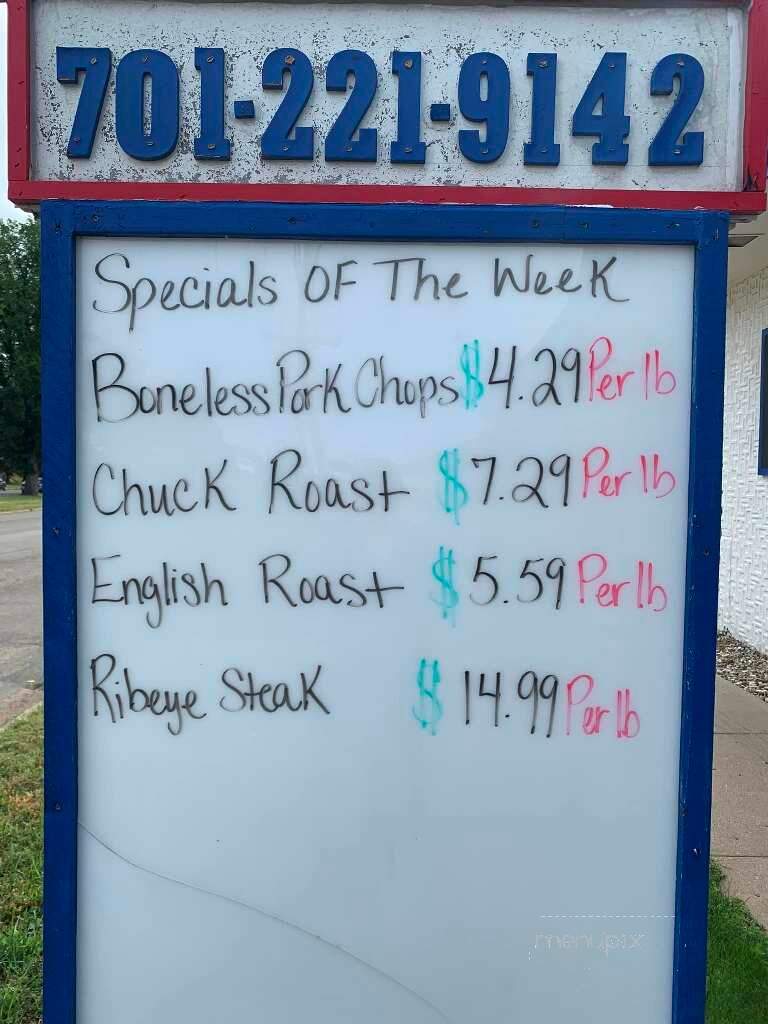 701-221-9142
Specials OF The Week
Boneless Pork Chops $4.29 Per lb
Chuck Roast $7.29 Per lb
English Roast $5.59 Per lb
Ribeye Steak $14.99 Per lb
menupix